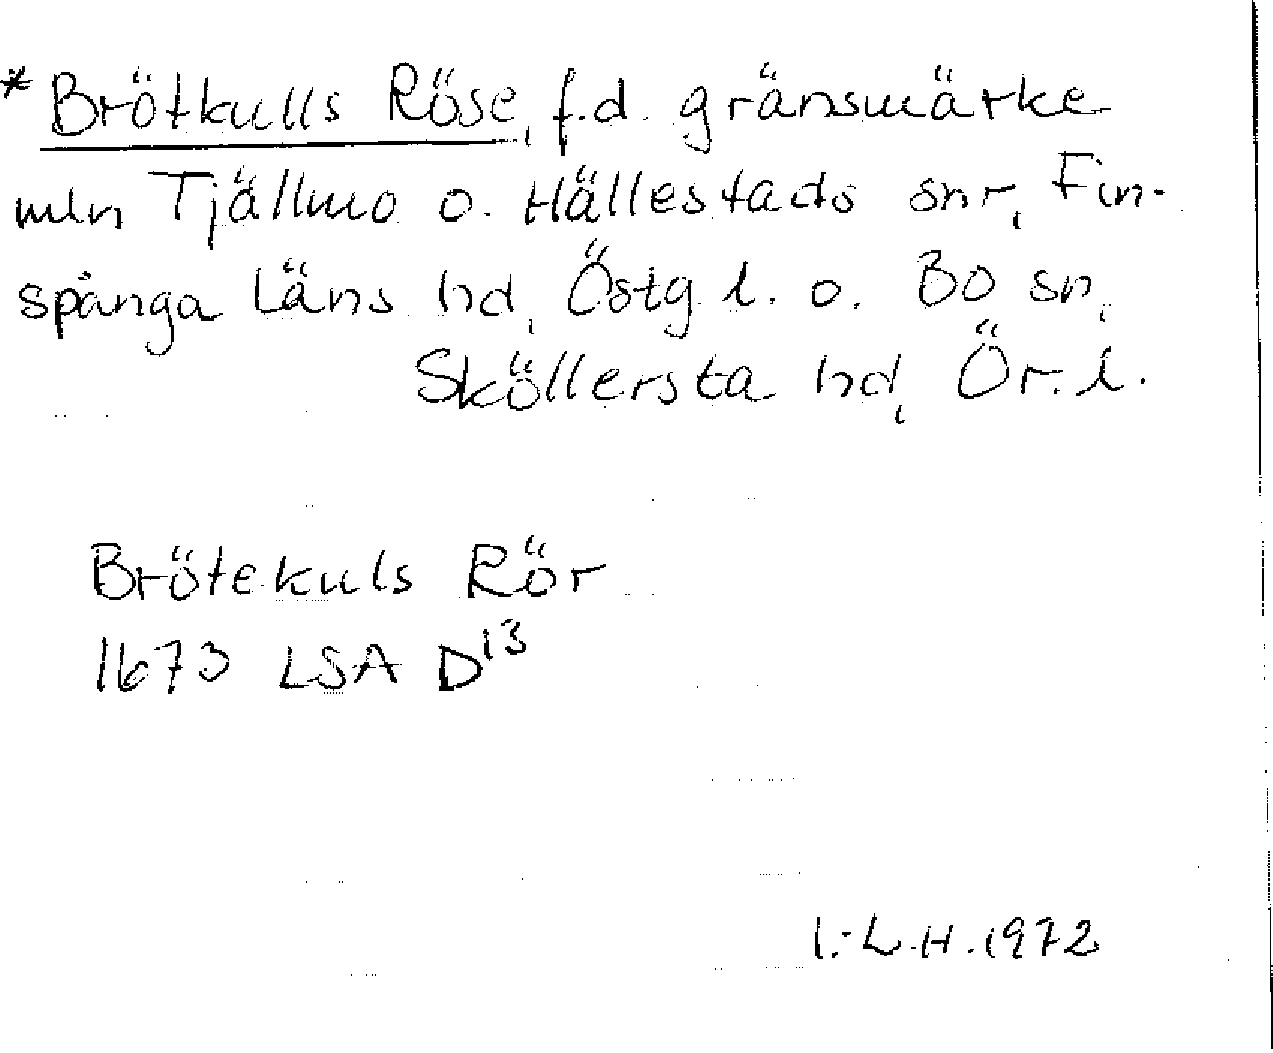 *Brötkulls Röse, f.d. gränsmärke
mln Tjällmo o. Hällestads snr, Fin-
spånga Läns hd, Östg. l. o. Bo sn,
Sköllersta hd, Ör. l.
Brötekuls Rör
1673 LSA D13
I.-L.H. 1972